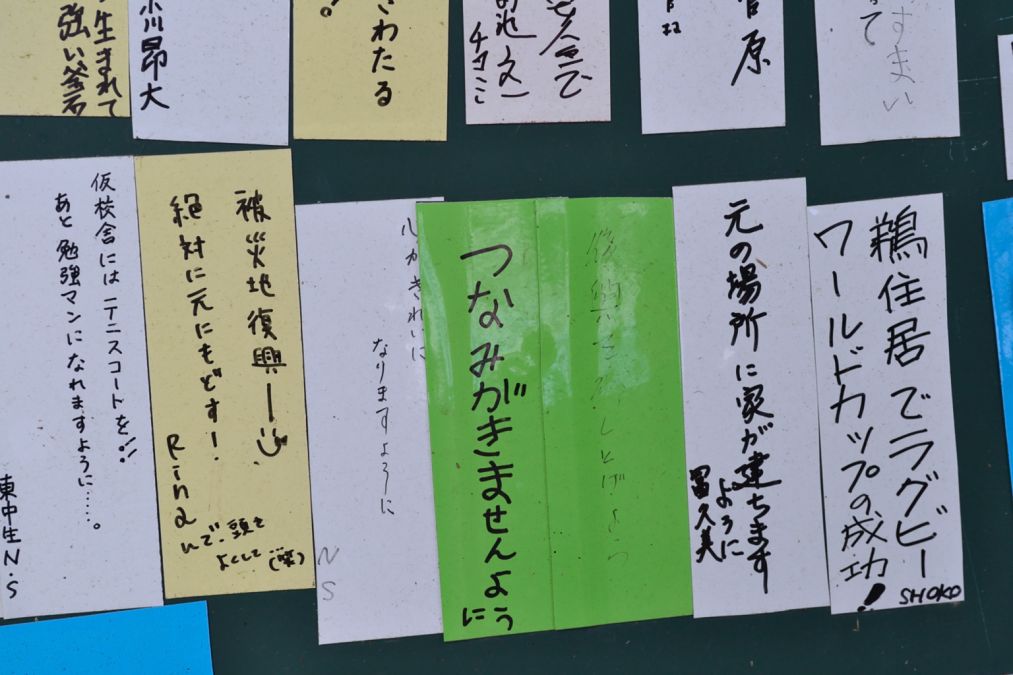 生まれて
強い釜石
小川昂大
さわたる
チヨミ
菅原
すまい
仮校舎にはテニスコートを!!
あと勉強マンになれますように……。
東中生N.S
被災地復興ー
絶対に元にもどす!
Rina
んで、頭も
よくして(笑)
心がきれいに
なりますように
N S
つなみがきませんよう
に
復興をなしとげよう
元の場所に家が建ちます
ように
冨久美
鵜住居でラグビー
ワールドカップの成功!
SHOKO